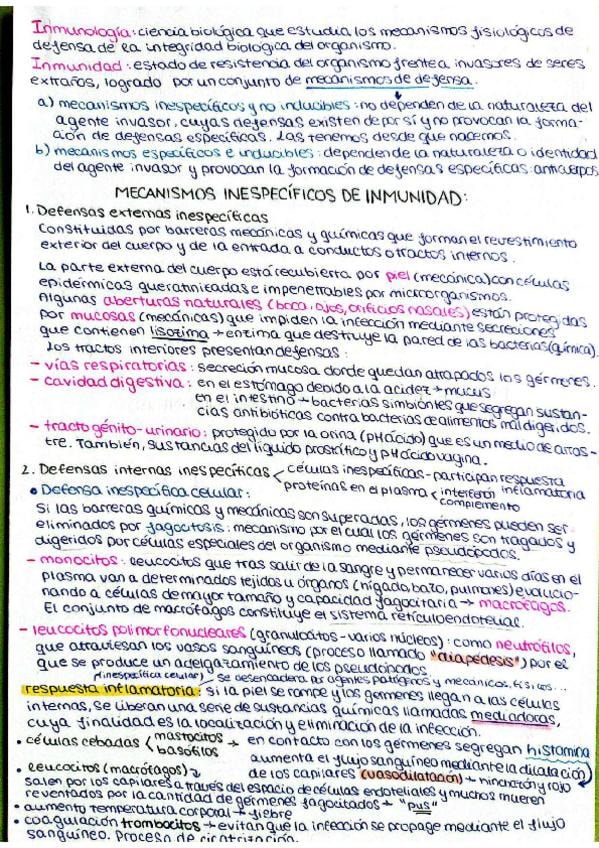 Inmunología: ciencia biológica que estudia los mecanismos fisiológicos de
defensa de la integridad biológica del organismo.
Inmunidad: estado de resistencia del organismo frente a invasores de seres
extraños, logrado por un conjunto de mecanismos de defensa.
a) mecanismos inespecíficos y no inducibles: no dependen de la naturaleza del
agente invasor, cuyas defensas existen de por sí y no provocan la forma-
ción de defensas específicas. Las tenemos desde que nacemos.
b) mecanismos específicos e inducibles: dependen de la naturaleza o identidad
del agente invasor y provocan la formación de defensas específicas: anticuerpos
MECANISMOS INESPECÍFICOS DE INMUNIDAD:
1. Defensas externas inespecíficas
Constituidas por barreras mecánicas y químicas que forman el revestimiento
exterior del cuerpo y de la entrada a conductos o tractos internos.
La parte externa del cuerpo está recubierta por piel (mecánica) con células
epidérmicas queratinizadas e impenetrables por microorganismos.
Algunas aberturas naturales (boca, ojos, orificios nasales) están protegidas
por mucosas (mecánicas) que impiden la infección mediante secreciones
que contienen lisozima → enzima que destruye la pared de las bacterias (química).
Los tractos interiores presentan defensas:
- vías respiratorias: secreción mucosa donde quedan atrapados los gérmenes.
- cavidad digestiva: en el estómago debido a la acidez → mucus
en el intestino → bacterias simbióntes que segregan sustan-
cias antibióticas contra bacterias de alimentos mal digeridos.
- tracto génito-urinario: protegido por la orina (pH ácido) que es un medio de arras-
tre. También, sustancias del líquido prostático y pH ácido vagina.
2. Defensas internas inespecíficas células inespecíficas - participan respuesta inflamatoria
proteínas en el plasma interferón complemento
• Defensa inespecífica celular:
Si las barreras químicas y mecánicas son superadas, los gérmenes pueden ser
eliminados por fagocitosis: mecanismo por el cual los gérmenes son tragados y
digeridos por células especiales del organismo mediante pseudópodos.
- monocitos: leucocitos que tras salir de la sangre y permanecer varios días en el
plasma van a determinados tejidos u órganos (hígado, bazo, pulmones) evolucio-
nando a células de mayor tamaño y capacidad fagocitaria → macrófagos.
El conjunto de macrófagos constituye el sistema retículoendotelial.
- leucocitos polimorfonucleares (granulocitos - varios núcleos): como neutrófilos,
que atraviesan los vasos sanguíneos (proceso llamado "diapédesis") por el
que se produce un adelgazamiento de los pseudópodos.
(inespecífica celular) se desencadena por agentes patógenos y mecánicos, físicos...
respuesta inflamatoria: si la piel se rompe y los gérmenes llegan a las células
internas, se liberan una serie de sustancias químicas llamadas mediadoras,
cuya finalidad es la localización y eliminación de la infección.
• células cebadas mastocitos basófilos → en contacto con los gérmenes segregan histamina
aumenta el flujo sanguíneo mediante la dilatación
de los capilares (vasodilatación) → hinchazón y rojo
• leucocitos (macrófagos)
salen por los capilares a través del espacio de células endoteliales y muchos mueren
reventados por la cantidad de gérmenes fagocitados → "pus"
• aumento temperatura corporal → fiebre
• coagulación trombocitos → evitan que la infección se propague mediante el flujo
sanguíneo. Proceso de cicatrización.